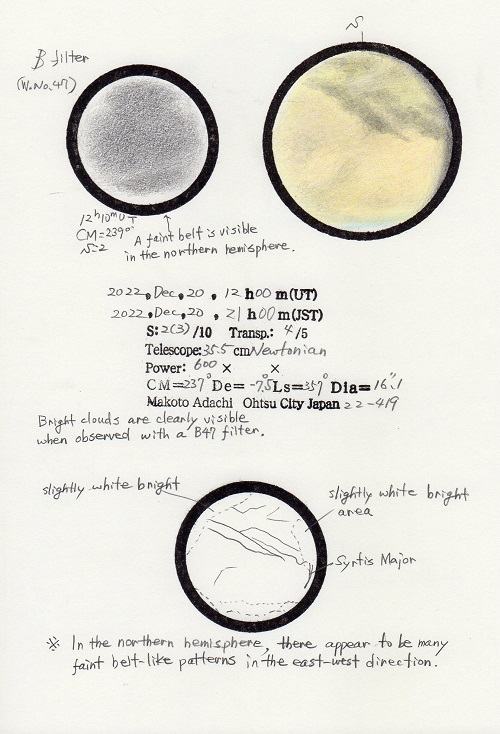 S
B filter
(W.No.47)
12h10mUT
CM=239°
S=2
A faint belt is visible
in the northern hemisphere.
2022, Dec, 20, 12 h00 m(UT)
2022, Dec, 20, 21 h00 m(JST)
S:2(3)/10 Transp.: 4/5
Telescope:35.5 cm Newtonian
Power: 600 × ×
CM=237° De= -7.5° Ls=357° Dia= 16".1
Makoto Adachi Ohtsu City Japan 22-419
Bright clouds are clearly visible
when observed with a B47 filter.
slightly white bright
slightly white bright
area
Syrtis Major
※ In the northern hemisphere, there appear to be many
faint belt-like patterns in the east-west direction.